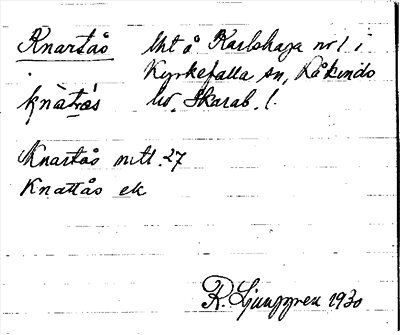 Knartås Lht å Karlshaga nr 1 i
Kyrkefalla sn, Kåkinds
knàtås hd. Skarab. l.
Knartås mtl. 27
Knattås ek
R. Ljunggren 1930